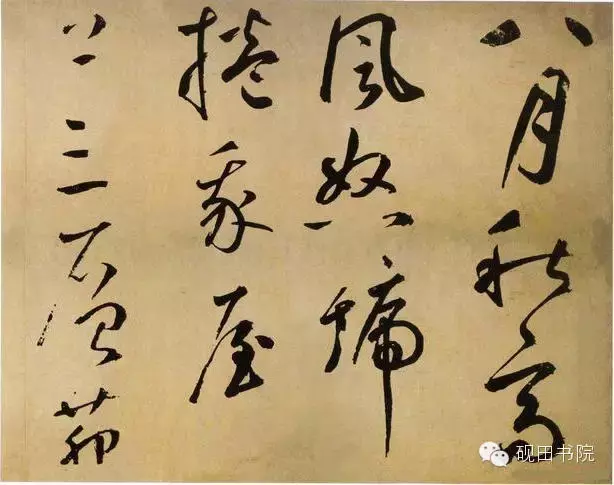 八月秋高
風怒號
捲我屋
上三層茆
砚田书院